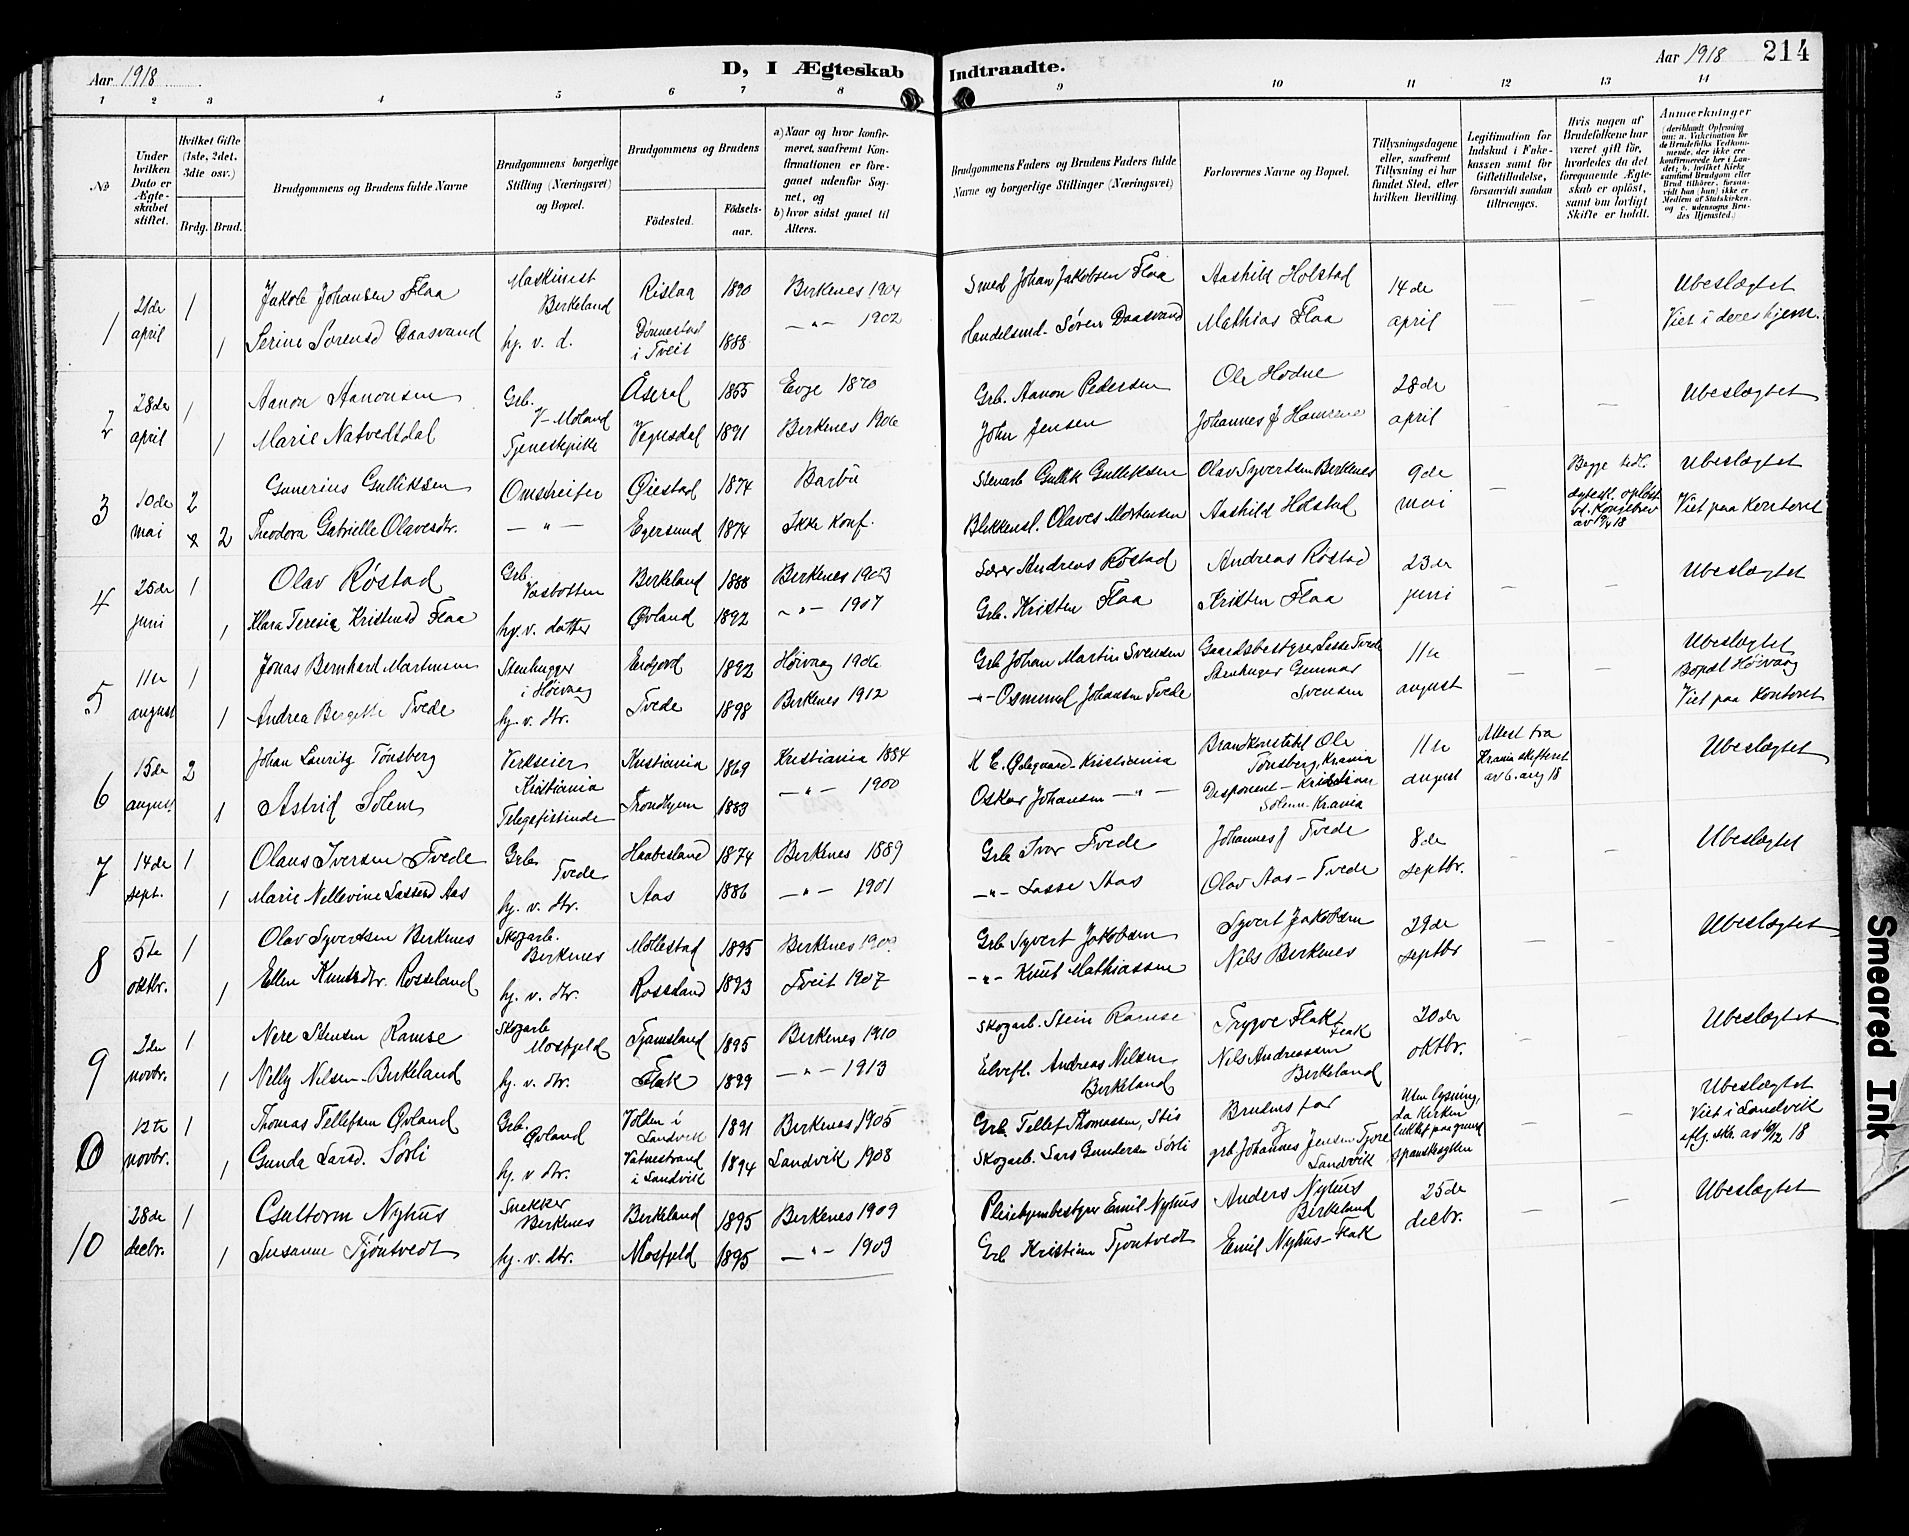 Aar 1918
D, I Ægteskab Indtraadte.
Aar 1918 214
1 2 3 4 5 6 7 8 9 10 11 12 13 14
No
Under hvilken Dato er Ægteskabet stiftet.
Hvilket Gifte (1ste, 2det, 3die osv.)
Brdg. Brud.
Brudgommens og Brudens fulde Navne
Brudgommens borgerlige Stilling (Næringsvei) og Bopæl.
Brudgommens og Brudens
Fødested. Fødselsaar.
a) Naar og hvor konfirmeret, saafremt Konfirmationen er foregaaet udenfor Sognet, og
b) hvor sidst gaaet til Alters.
Brudgommens Faders og Brudens Faders fulde Navne og borgerlige Stillinger (Næringsvei)
Forlovernes Navne og Bopæl.
Tillysningsdagene eller, saafremt Tillysning ei har fundet Sted, efter hvilken Bevilling.
Legitimation for Indskud i Enkekassen samt for Giftetilladelse, forsaavidt saadan tiltrænges.
Hvis nogen af Brudefolkene har været gift før, hvorledes da det foregaaende Ægteskab er opløst, samt om lovligt Skifte er holdt.
Anmærkninger
1 21de april 1 Jakob Johansen Flaa Maskinist Birkeland Rislaa 1890 Birkenes 1904 Smed Johan Jakobsen Flaa Aashild Holstad 14de april — — Ubeslægtet
1 Serine Sørensd Daasvand hj. v. d. Dønnestad i Tveit 1888 —"— 1902 Handelsmd. Søren Daasvand Mathias Flaa Viet i deres hjem.
2 28de april 1 Aanon Aanonsen Grb. V-Moland Åseral 1855 Evje 1870 Grb. Aanon Pedersen Ole Hodne 28de april — — Ubeslægtet
1 Marie Natvedtdal Tjenestepike Vegusdal 1891 Birkenes 1906 John Jensen Johannes J
3 10de mai 2 Gunerius Gulliksen Omstreifer Øiestad 1874 Barbu Stenarb Gullik Gulliksen Olav Syvertsen Birkenes 9de mai — Begge tidl. Ubeslægtet
2 Theodora Gabrielle Olavesdtr. —"— Egersund 1874 Ikke konf. Blikkensl. Olaves Mortensen Aashild Holstad ægtesk. opløst Viet paa Kontoret
4 25de juni 1 Olav Røstad Grb. Birkeland 1888 Birkenes 1903 Lærer Andreas Røstad Andreas Røstad 23de juni — — Ubeslægtet
1 Klara Teresia Kristensd Flaa hj. v. datter Øvland 1892 —"— 1907 Grb. Kristen Flaa Kristen Flaa
5 11te august 1 Jonas Bernhard Martinsen Stenhugger i Høivaag 1892 Høivaag 1906 Grb Johan Martin Svensen Gaardsbestyrer Lasse Tvede 11te august — — Ubeslægtet Bopæl Høivaag
1 Andrea Bergitte Tvede hj. v. dtr. Tvede 1898 Birkenes 1912 —"— Osmund Johansen Tvede Stenhuger Gunnar Svensen Viet paa Kontoret
6 15de august 2 Johan Lauritz Tønsberg Verkseier Kristiania Kristiania 1869 Kristiania 1884 K E. Ødegaard - Kristiania Brandkonstabel Ole Tønsberg, Krania 11te august Attest fra Krania skifteret av 6. aug 18 Ubeslægtet
1 Astrid Solem Telegrafistinde Trondhjem 1883 —"— 1900 Oskar Johansen —"— Disponent - Kristian Solem - Krania
7 14de sept. 1 Olaus Iversen Tvede Grb. Tvede Haabesland 1874 Birkenes 1889 Grb Ivar Tvede Johannes J Tvede 8de septbr. — — Ubeslægtet
1 Marie Nellevine Lassesd Aas hj. v. dtr. Aas 1886 —"— 1901 —"— Lasse Aas Olav Aas - Tvede
8 5te oktbr. 1 Olav Syvertsen Birkenes Skogarb. Birkenes Mollestad 1895 Birkenes Grb Syvert Jakobsen Syvert Jakobsen 29de septbr — — Ubeslægtet
1 Ellen Knutsdtr. Rosseland hj. v. dtr. Rosseland 1893 Tveit 1907 —"— Knut Mathiassen Nils Birkenes
9 2den novbr. 1 Nere Stensen Ramse Skogarb Mosfjeld Tjamsland 1895 Birkenes 1910 Skogarb. Stein Ramse Trygve Flak Flak 20de oktbr. — — Ubeslægtet
1 Nelly Nilsen - Birkeland hj. v. dtr. Flak 1899 —"— 1913 Elvefl. Andreas Nilsen Birkeland Nils Andreassen Birkeland
10 12te novbr. 1 Thomas Tellefsen Øvland Grb. Øvland Volden i Landvik 1891 Birkenes 1905 Grb. Tellef Thomassen, Stis Brudens far og Uten lysning, da kirken lukket paa grund spanskesyken — Ubeslægtet Viet i Landvik
1 Gunda Larsd. Sørli hj. v. dtr. Vatnestrand i Landvik 1894 Landvik 1908 Skogarb. Lars Gundersen Sørli grb Johannes Jensen Tjore Landvik
10 28de decbr. 1 Gultorm Nyhus Snekker Birkenes Birkeland 1895 Birkenes 1909 Pleiehjembestyrer Emil Nyhus Anders Nyhus Birkeland 25de decbr. — — Ubeslægtet
1 Susanne Tjøntvedt hj. v. dtr. Mosfjeld 1895 —"— 1909 Grb Kristian Tjøntvedt Emil Nyhus - Flak
Smeared Ink